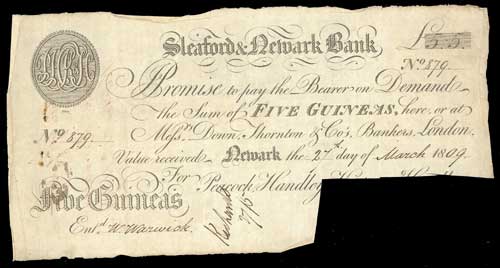 Sleaford & Newark Bank
£5.5
No 879
I Promise to pay the Bearer on Demand
the Sum of FIVE GUINEAS, here, or at
No 879 Messrs Down, Thornton & Co's, Bankers, London.
Value received Newark the 27th day of March 1809
For Peacock, Handley
Five Guineas
Entd W. Warwick.